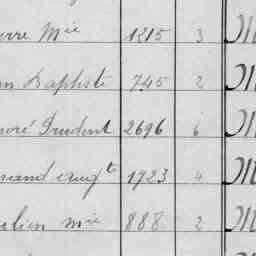 erre Mie 1215 3 M
n Baptiste 745 2 M
oré Prudent 2696 6 M
sand augte 1723 4 M
ulien mie 888 2 M